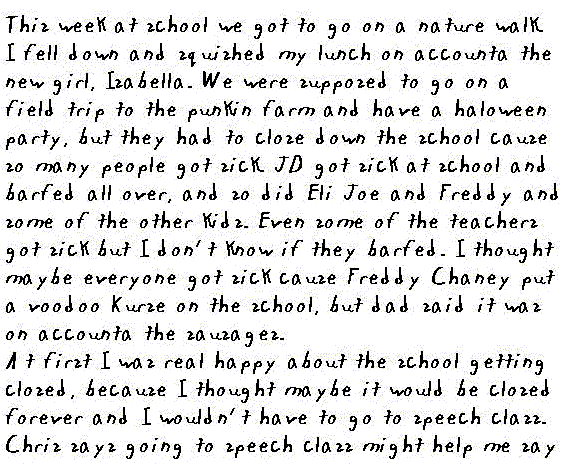 This week at school we got to go on a nature walk
I fell down and squished my lunch on accounta the
new girl, Isabella. We were supposed to go on a
field trip to the punkin farm and have a haloween
party, but they had to close down the school cause
so many people got sick. JD got sick at school and
barfed all over, and so did Eli Joe and Freddy and
some of the other kids. Even some of the teachers
got sick but I don't know if they barfed. I thought
maybe everyone got sick cause Freddy Chaney put
a voodoo kurse on the school, but dad said it was
on accounta the sausages.
At first I was real happy about the school getting
closed, because I thought maybe it would be closed
forever and I wouldn't have to go to speech class.
Chris says going to speech class might help me say